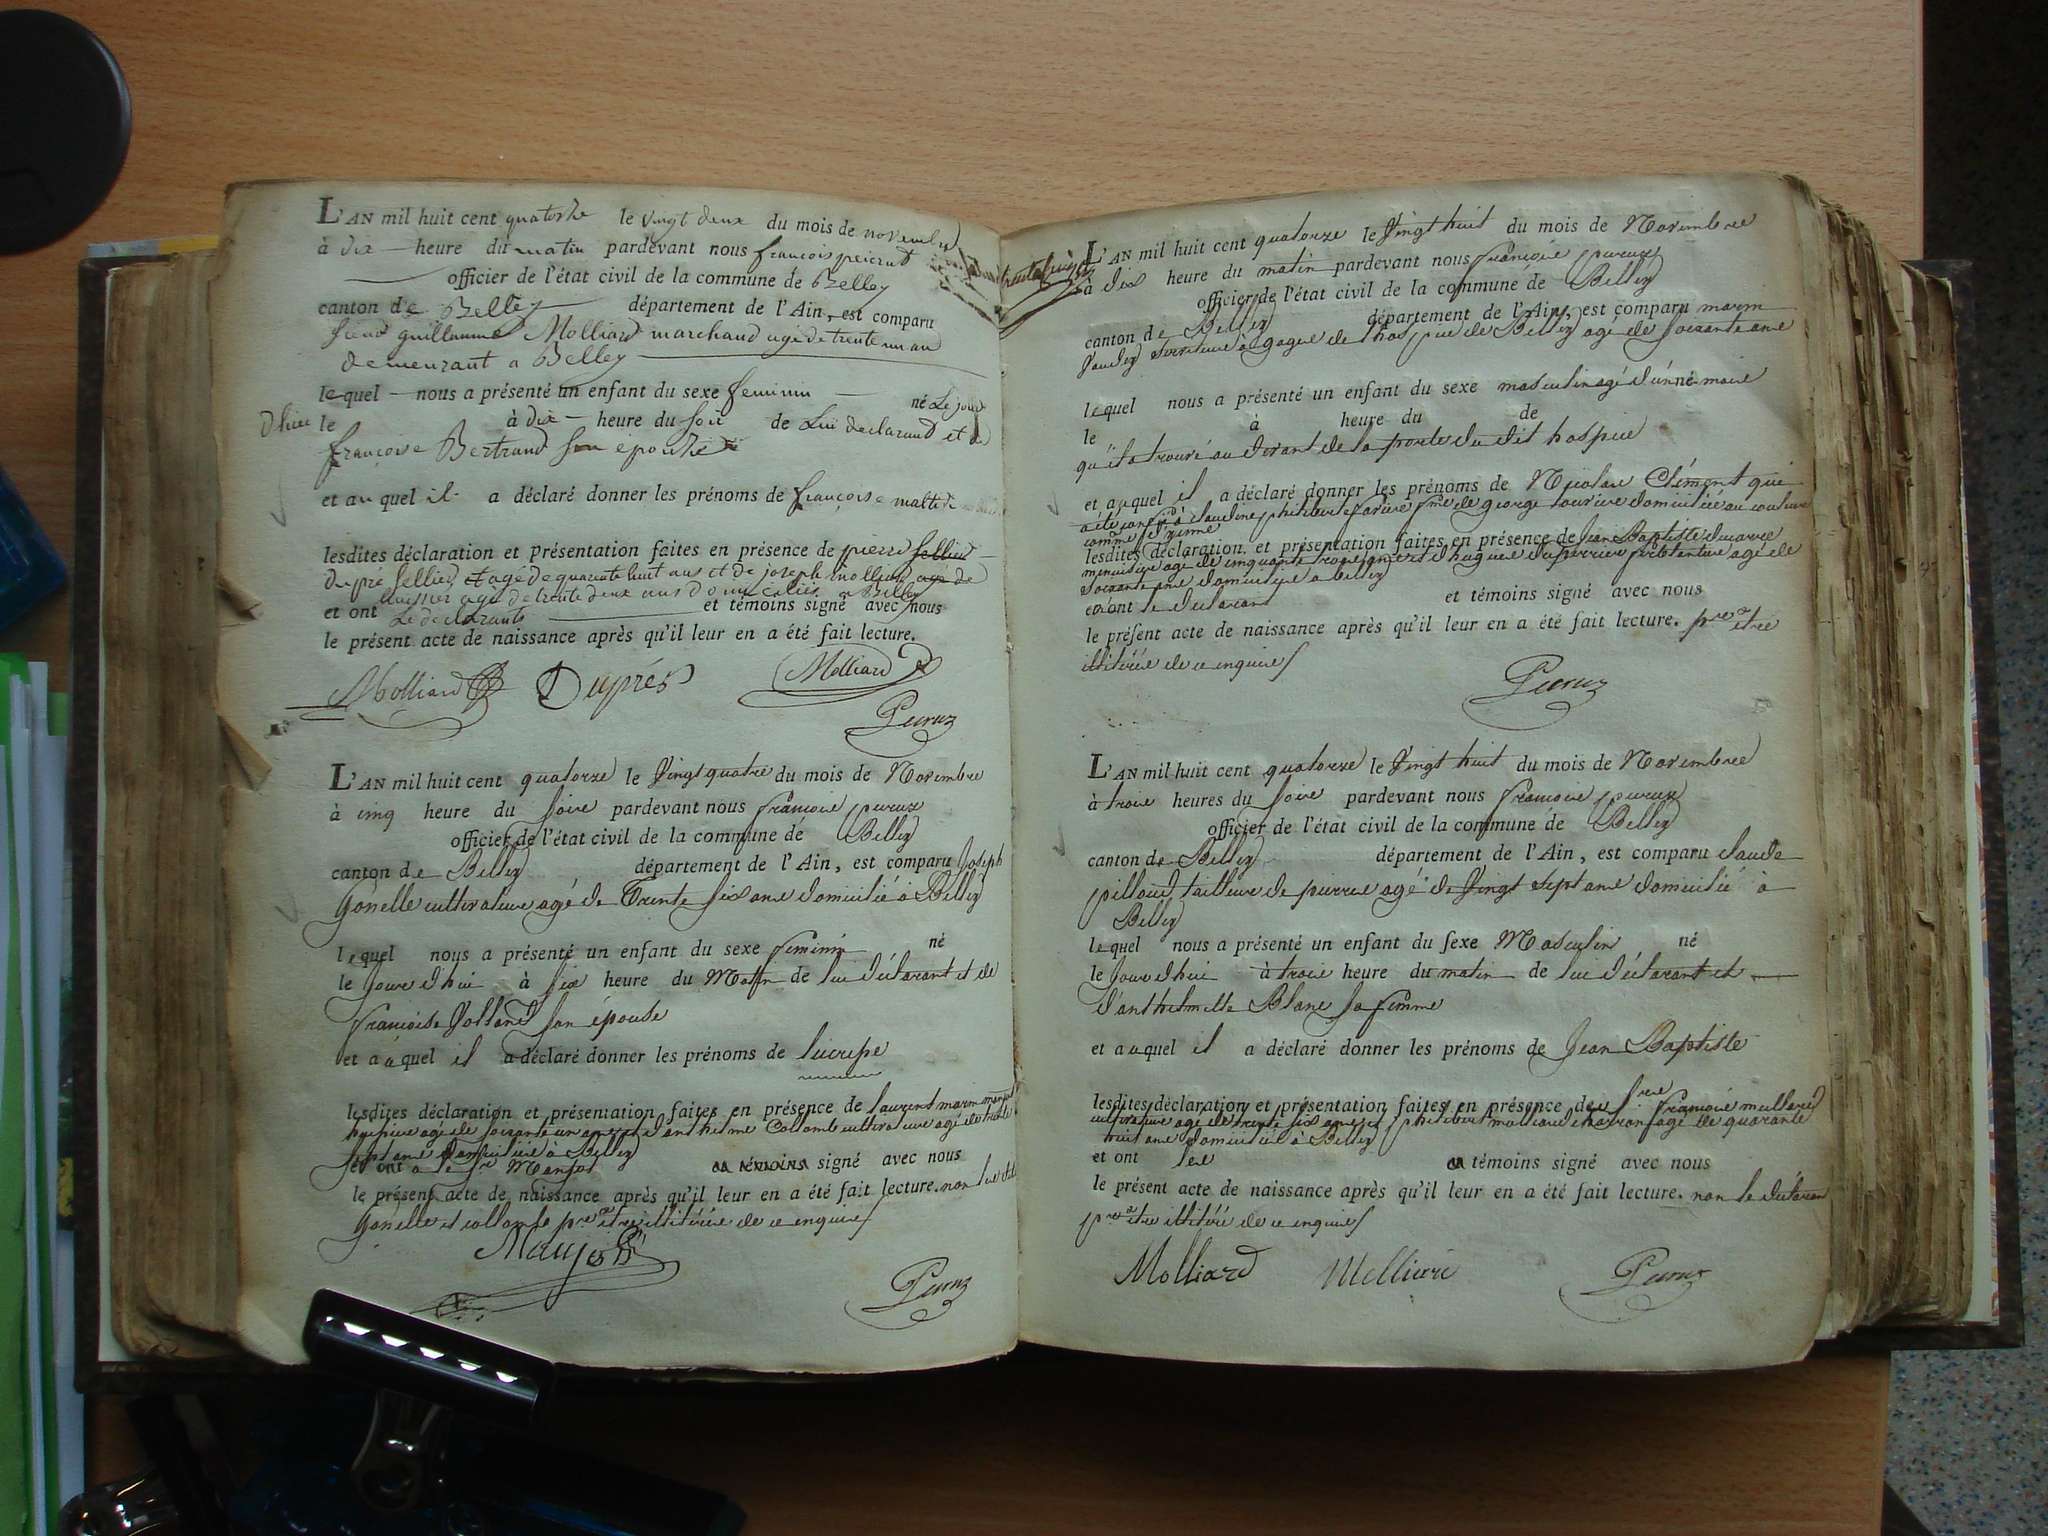 L'AN mil huit cent quatorze le vingt deux du mois de novembre
à dix heure du matin pardevant nous françois peieruz
officier de l'état civil de la commune de Belley
canton de Belley département de l'Ain, est comparu
sieur guillaume Molliard marchand agé de trente un an
demeurant a Belley
lequel nous a présenté un enfant du sexe feminin né Le jour
dhier le à dix heure du soir de Lui declarand et de
françoise Bertrand son epouse
et auquel il a déclaré donner les prénoms de françoise
lesdites déclaration et présentation faites en présence de pierre sellier
dupré sellier et agé de quarante huit ans et de joseph molliard agé de
huissier agé de trente deux ans domicilies a Belley
et ont Le declarants et témoins signé avec nous
le présent acte de naissance après qu'il leur en a été fait lecture.
Molliard Duprés Molliard
Peiruz
L'AN mil huit cent quatorze le Vingt quatre du mois de Novembre
à cinq heure du soir pardevant nous françois peiruz
officier de l'état civil de la commune de Belley
canton de Belley département de l'Ain, est comparu Joseph
Gonelle cultivateur agé de Trente six ans domicilié à Belley
lequel nous a présenté un enfant du sexe feminin né
le Jour d'hui à six heure du Matin de lui déclarant et de
françoise Volland son épouse
et auquel il a déclaré donner les prénoms de lucresse
lesdites déclaration et présentation faites en présence de laurent marin manjot
huissier agé de soixante un ans et d'anthelme Collombe cultivateur agé de trente
sept ans domicilié à Belley
et ont le Sr Manjot témoins signé avec nous
le présent acte de naissance après qu'il leur en a été fait lecture. non les dits
Gonelle et collombe pour etre illitérés de ce enquis
Manjot
Peiruz
L'AN mil huit cent quatorze le Vingt huit du mois de Novembre
à dix heure du matin pardevant nous françois peiruz
officier de l'état civil de la commune de Belley
canton de Belley département de l'Ain, est comparu marin
Vaudey serviteur à gages de l'hospice de Belley agé de soixante ans
lequel nous a présenté un enfant du sexe masculin agé d'un né mois
le à heure du de
qu'il a trouvé au devant de la porte du dit hospice
et auquel il a déclaré donner les prénoms de Nicolas Clément qui
a été confié à claudine philiberte fme de george domiciliée au
comme
lesdites déclaration et présentation faites en présence de Jean Baptiste ducarre
menuisier agé de cinquante trois ans et d'hugues duperrier agé de
soixante ans domiciliés à Belley
et ont le déclarant et témoins signé avec nous
le présent acte de naissance après qu'il leur en a été fait lecture. pour etre
illitérés de ce enquis
Peiruz
L'AN mil huit cent quatorze le Vingt huit du mois de Novembre
à trois heures du soir pardevant nous françois peiruz
officier de l'état civil de la commune de Belley
canton de Belley département de l'Ain, est comparu claude
pilloud tailleur de pierre agé de Vingt sept ans domicilié à
Belley
lequel nous a présenté un enfant du sexe Masculin né
le Jour d'hui à trois heure du matin de lui déclarant et
d'anthelmette Blanc sa femme
et auquel il a déclaré donner les prénoms de Jean Baptiste
lesdites déclaration et présentation faites en présence des srs françois
cultivateur agé de trente six ans et philibert molliard charron agé de quarante
huit ans domiciliés à Belley
et ont les témoins signé avec nous
le présent acte de naissance après qu'il leur en a été fait lecture. non le déclarant
pour etre illitéré de ce enquis
Molliard Molliard Peiruz